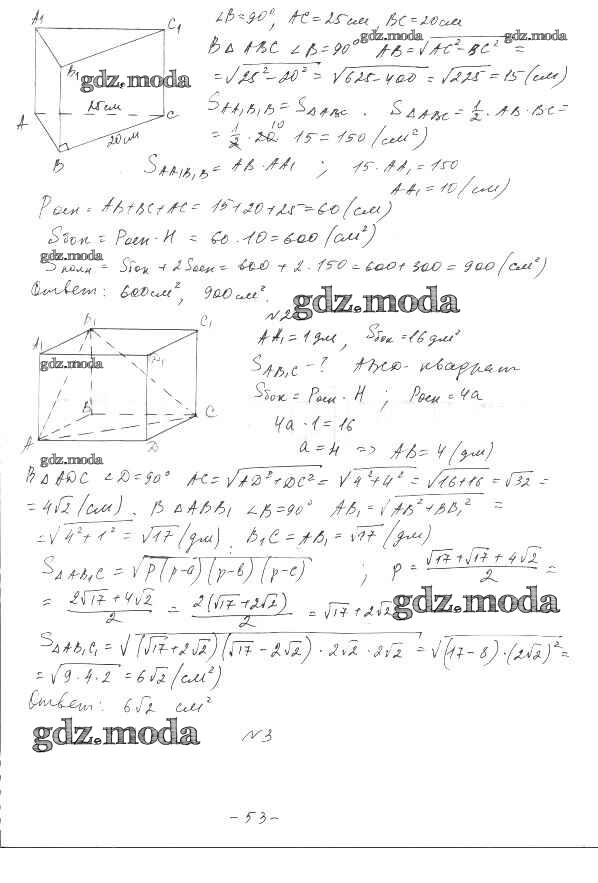 ∠B=90°, AC=25см, BC=20см
A₁ C₁ B₁ A C B 25см 20см
В △ ABC ∠B=90° AB=√(AC²-BC²) =
gdz.moda gdz.moda
gdz.moda
=√(25²-20²)=√(625-400)=√225=15(см)
S_AA₁B₁B=S△ABC. S△ABC=1/2·AB·BC=
=1/2·20 10 15=150(см²)
S_AA₁B₁B=AB·AA₁ ; 15·AA₁=150
AA₁=10(см)
Pосн=AB+BC+AC=15+20+25=60(см)
Sбок=Pосн·H=60·10=600(см²)
gdz.moda
Sполн=Sбок+2Sосн=600+2·150=600+300=900(см²)
Ответ: 600см², 900см².
gdz.moda
N2
B₁ C₁ A₁ D₁ B C A D
AA₁=1дм, Sбок=16дм²
gdz.moda
S_AB₁C-? ABCD-квадрат
Sбок=Pосн·H ; Pосн=4a
4a·1=16
a=4 => AB=4(дм)
gdz.moda
В △ADC ∠D=90° AC=√(AD²+DC²)=√(4²+4²)=√(16+16)=√32=
=4√2(см). В △ABB₁ ∠B=90° AB₁=√(AB²+BB₁²) =
=√(4²+1²)=√17(дм). B₁C=AB₁=√17(дм)
S△AB₁C=√(p(p-a)(p-b)(p-c)) ; p=(√17+√17+4√2)/2=
=(2√17+4√2)/2=(2(√17+2√2))/2=√17+2√2
gdz.moda
S△AB₁C₁=√((√17+2√2)(√17-2√2)·2√2·2√2)=√((17-8)·(2√2)²)=
=√(9·4·2)=6√2(см²)
Ответ: 6√2 см²
gdz.moda
N3
-53-